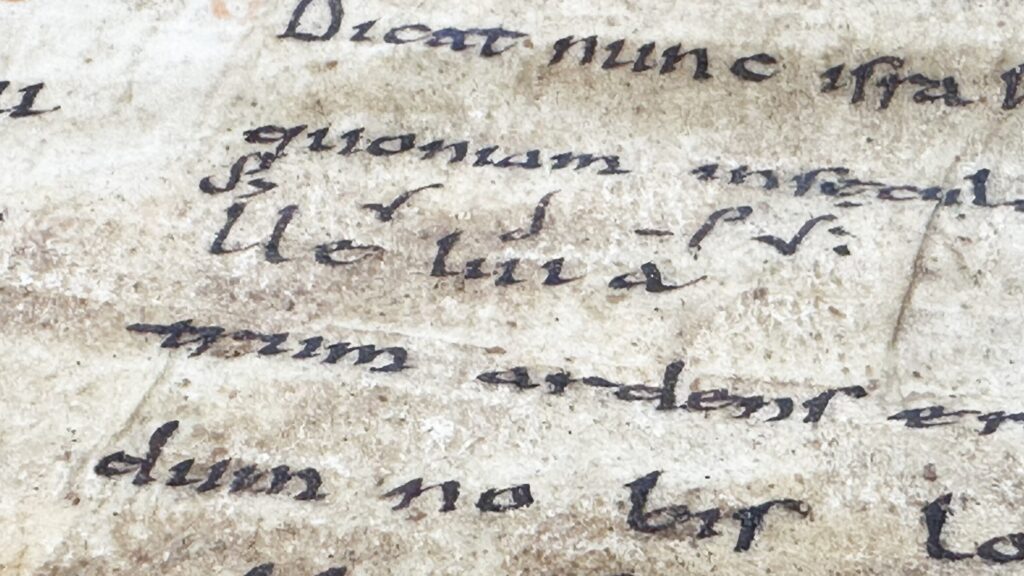 Dicat nunc isra
quoniam in secul
lle lui a
trum ardens er
dum no bis lo